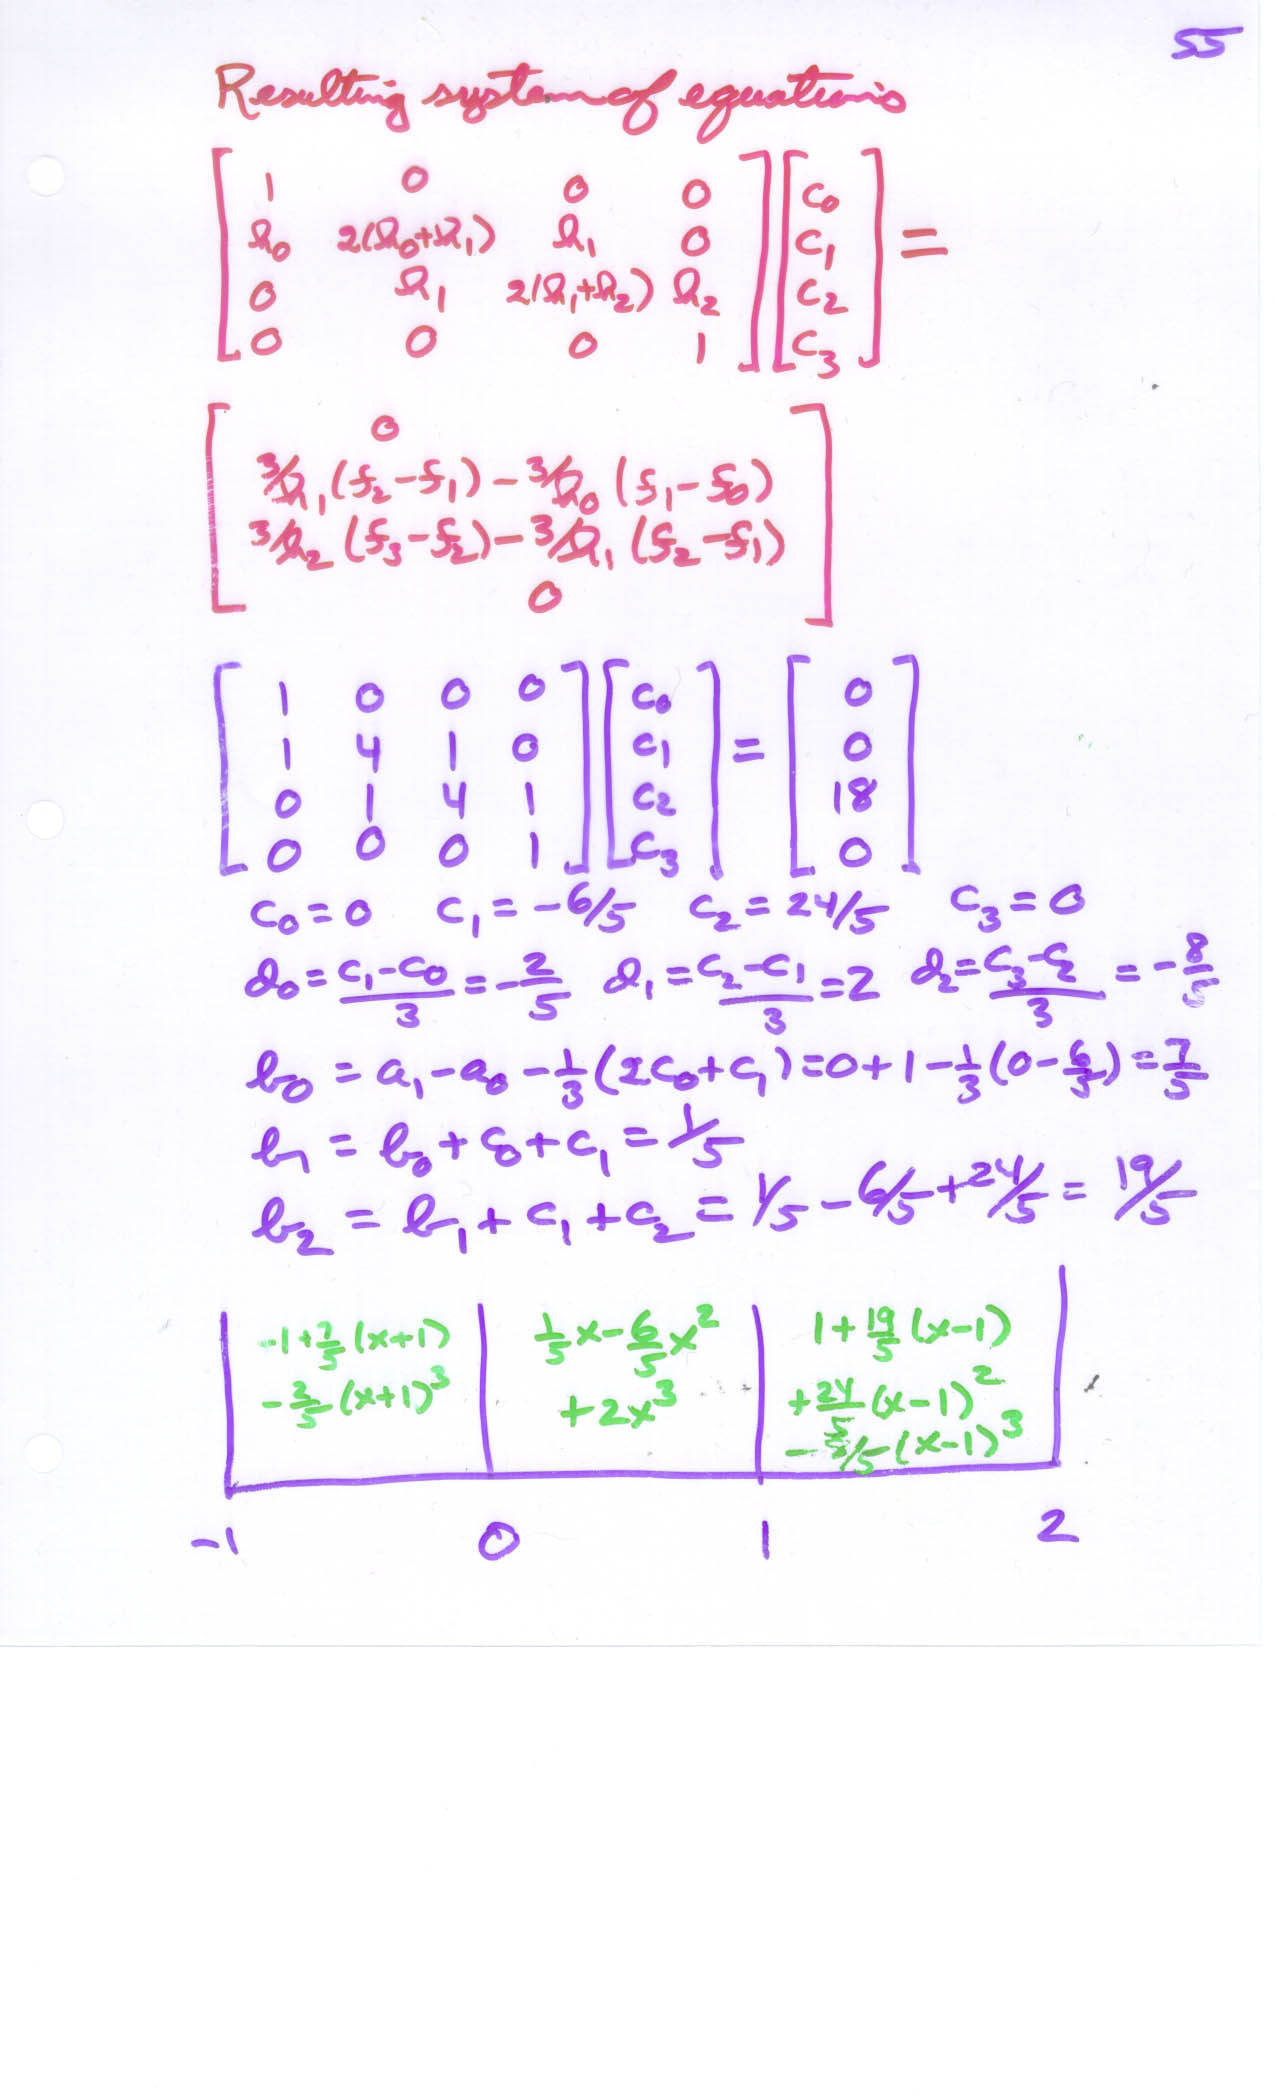 55
Resulting system of equations
[ 1 0 0 0 ] [ c₀ ]
[ h₀ 2(h₀+h₁) h₁ 0 ] [ c₁ ] =
[ 0 h₁ 2(h₁+h₂) h₂ ] [ c₂ ]
[ 0 0 0 1 ] [ c₃ ]
[ 0 ]
[ 3/h₁ (f₂-f₁) - 3/h₀ (f₁-f₀) ]
[ 3/h₂ (f₃-f₂) - 3/h₁ (f₂-f₁) ]
[ 0 ]
[ 1 0 0 0 ] [ c₀ ] [ 0 ]
[ 1 4 1 0 ] [ c₁ ] = [ 0 ]
[ 0 1 4 1 ] [ c₂ ] [ 18 ]
[ 0 0 0 1 ] [ c₃ ] [ 0 ]
c₀ = 0 c₁ = -6/5 c₂ = 24/5 c₃ = 0
d₀ = (c₁-c₀)/3 = -2/5 d₁ = (c₂-c₁)/3 = 2 d₂ = (c₃-c₂)/3 = -8/5
b₀ = a₁-a₀ - 1/3 (2c₀+c₁) = 0+1-1/3(0-6/5) = 7/5
b₁ = b₀+c₀+c₁ = 1/5
b₂ = b₁+c₁+c₂ = 1/5 - 6/5 + 24/5 = 19/5
-1+7/5(x+1)
-2/5(x+1)³
1/5x-6/5x²
+2x³
1+19/5(x-1)
+24/5(x-1)²
-8/5(x-1)³
-1 0 1 2